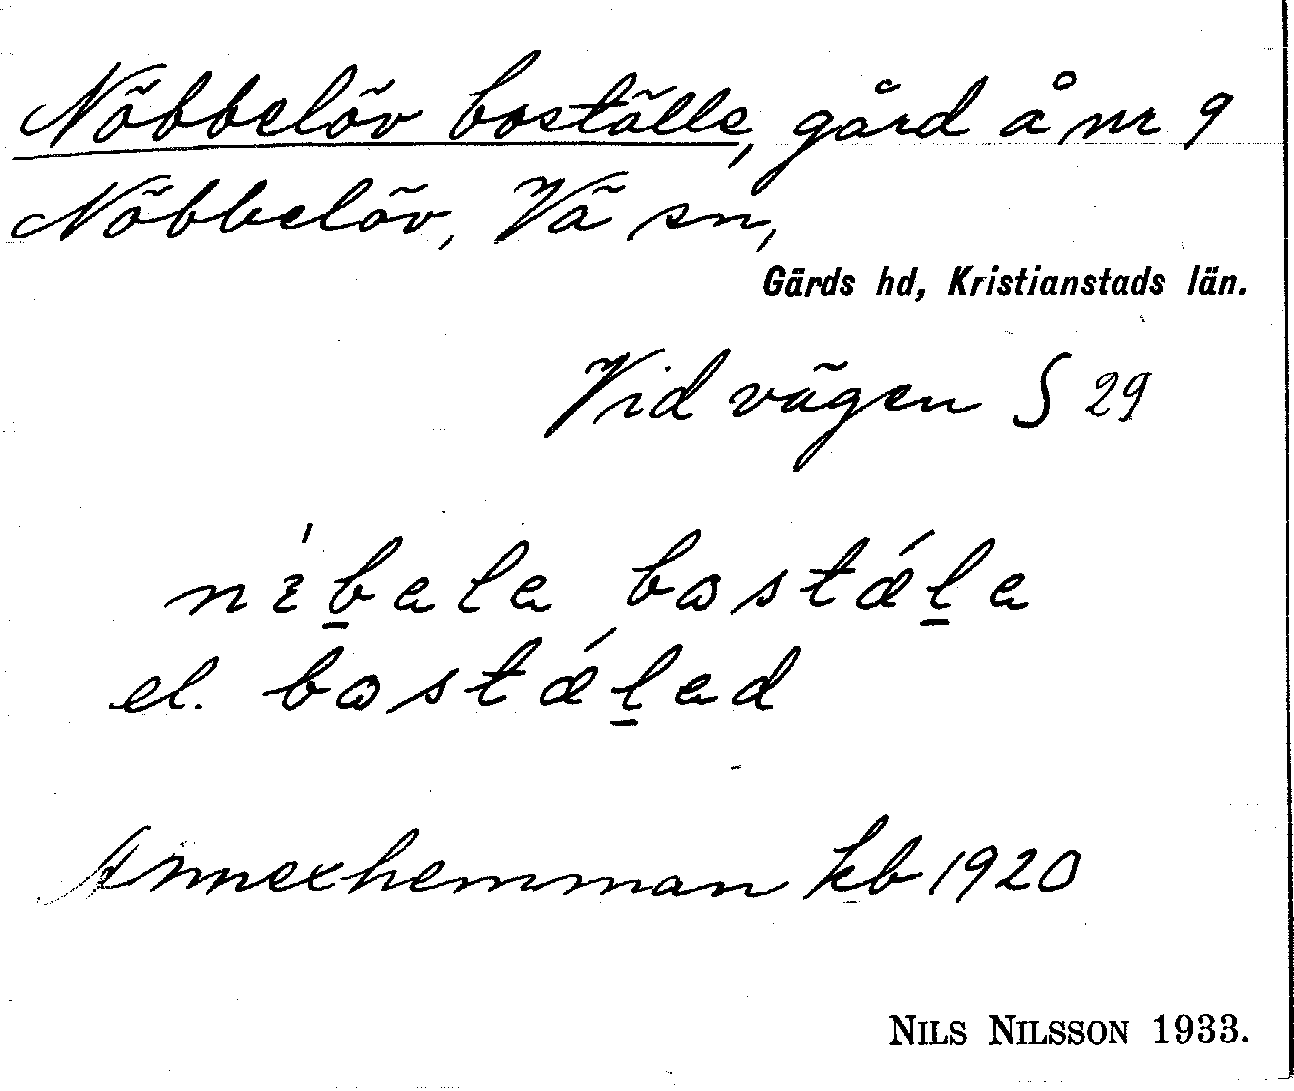 Nöbbelöv boställe, gård å nr 9
Nöbbelöv, Vä sn,
Gärds hd, Kristianstads län.
Vid vägen S 29
nìb̲ala bostǽl̲a
el. bostǽl̲ad
Annexhemman kb 1920
NILS NILSSON 1933.